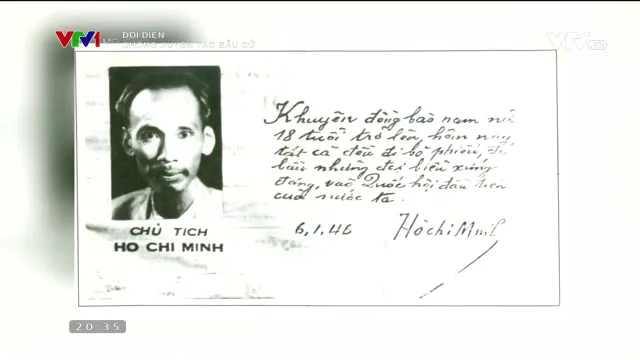 VTV1 ĐỐI DIỆN
XUYÊN TẠC BẦU CỬ
VTV.vn
Khuyên đồng bào nam nữ
18 tuổi trở lên, hôm nay
tất cả đều đi bỏ phiếu, để
bầu những đại biểu xứng
đáng, vào Quốc hội đầu tiên
của nước ta.
6.1.46 Hồ Chí Minh
CHỦ TỊCH
HO CHI MINH
20:35